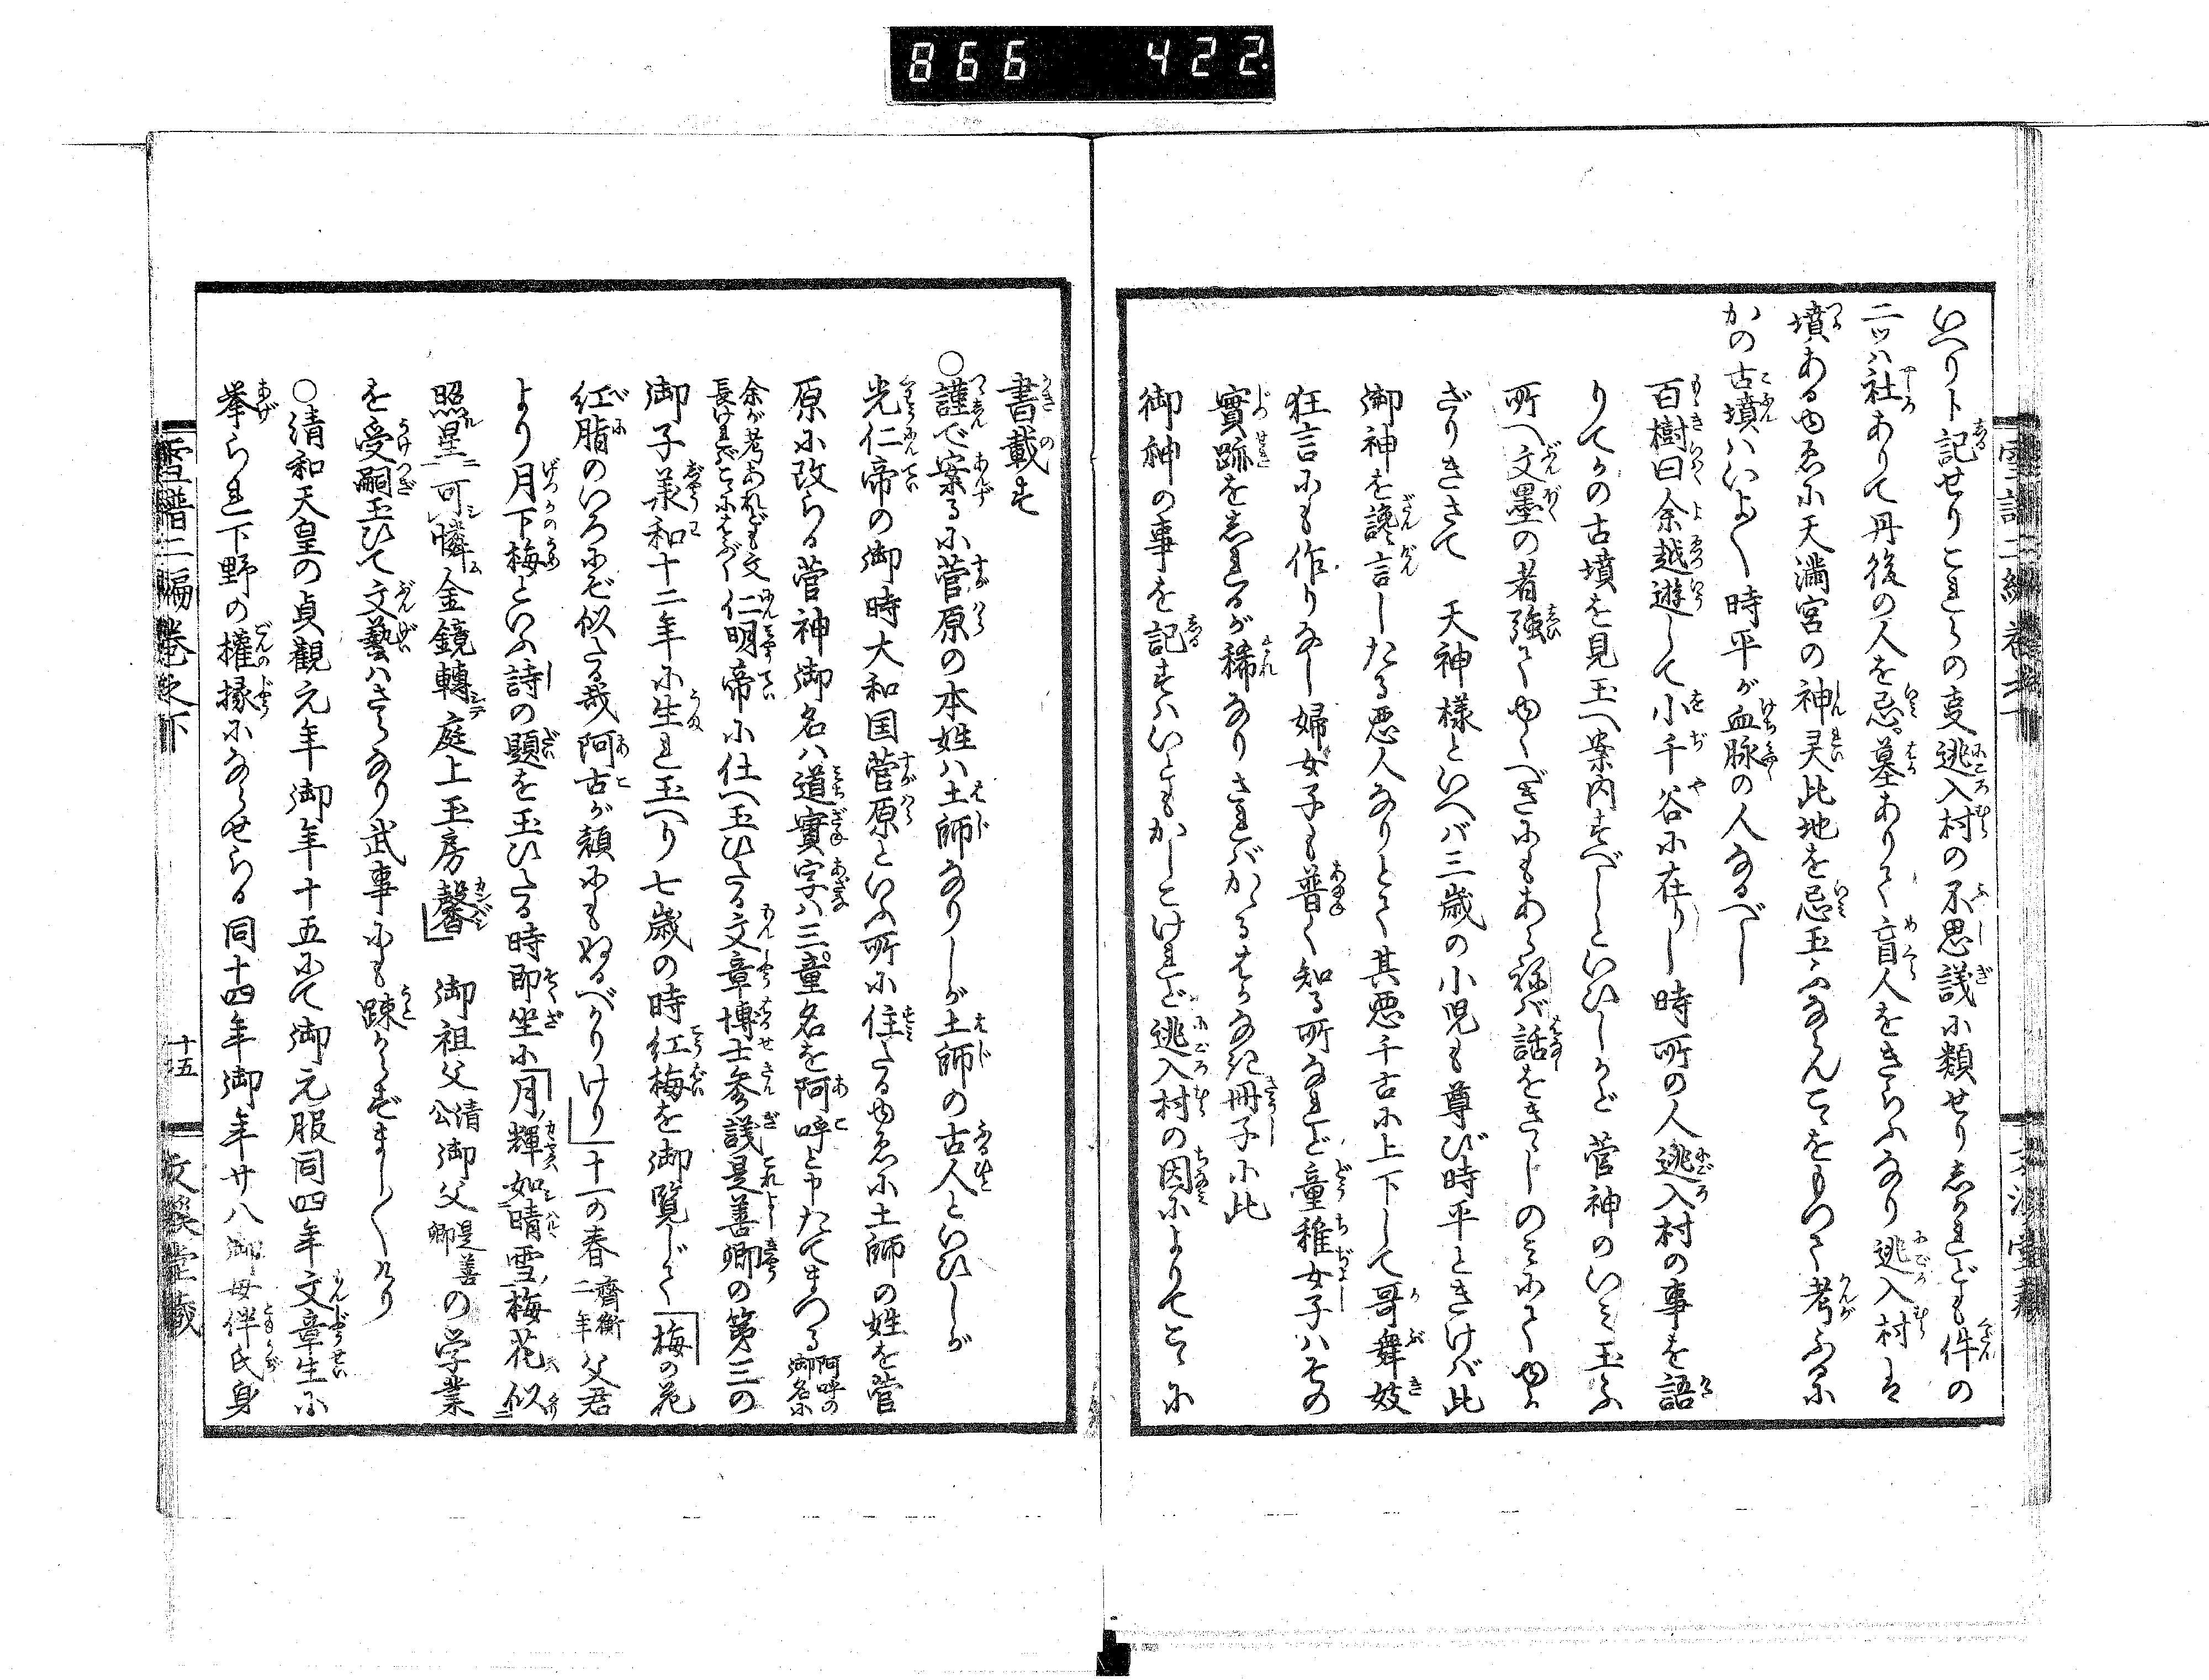 866 422.
いへりト記せりこれらの事逃入村の不思議に類せりしかれども件の
二ツハ社ありて丹後の人を忌墓ありて盲人をきらふなり逃入村は
墳あるゆゑに天満宮の神灵此地を忌玉ふならんこゝをもつて考ふるに
かの古墳ハいよ〱時平が血脉の人なるべし
百樹曰余越遊して小千谷に在りし時所の人逃入村の事を語
りてかの古墳を見玉へ案内すべしといひしかど菅神のいミ玉ふ
所へ文墨の者強てゆくべきにもあらねバ話をきゝしのミにてゆか
ざりきさて 天神様といへバ三歳の小児も尊び時平ときけバ此
御神を讒言したる悪人なりとて其悪千古に上下して哥舞妓
狂言にも作りなし婦女子も普く知る所なれど童稚女子ハその
實跡をしれるが稀なりさればかゝるはかなき冊子に此
御神の事を記すハいともかしこけれど逃入村の因によりてこゝに
雪譜二編巻之下
文溪堂藏
書載す
○謹で案るに菅原の本姓ハ土師なりしが土師の古人といひしが
光仁帝の御時大和国菅原といふ所に住たるゆゑに土師の姓を菅
原に改らる菅神御名ハ道實字ハ三童名を阿呼と申たてまつる 阿呼の御名に
余が考あれども文長ければこゝにはぶく 仁明帝に仕へ玉ひたる文章博士参議是善卿の第三の
御子承和十二年に生れ玉へり七歳の時紅梅を御覧じて「梅の花
紅脂のいろにぞ似たる哉阿古が顔にもぬるべかりけり」十一の春 齊衡二年 父君
より月下梅といふ詩の題を玉ひたる時即坐に「月ノ輝ハ如シ晴雪ノ梅花ハ似タリ
照星ニ可シ憐ム金鏡轉シテ庭上玉房馨カンバシ」 御祖父 清公 御父 是善卿 の学業
を受嗣玉ひて文藝ハさらなり武事にも踈からずまし〱けり
○清和天皇の貞観元年御年十五にて御元服同四年文章生に
挙られ下野の權掾にならせらる同十四年御年廿八御母伴氏身
雪譜二編巻之下 十五 文溪堂藏